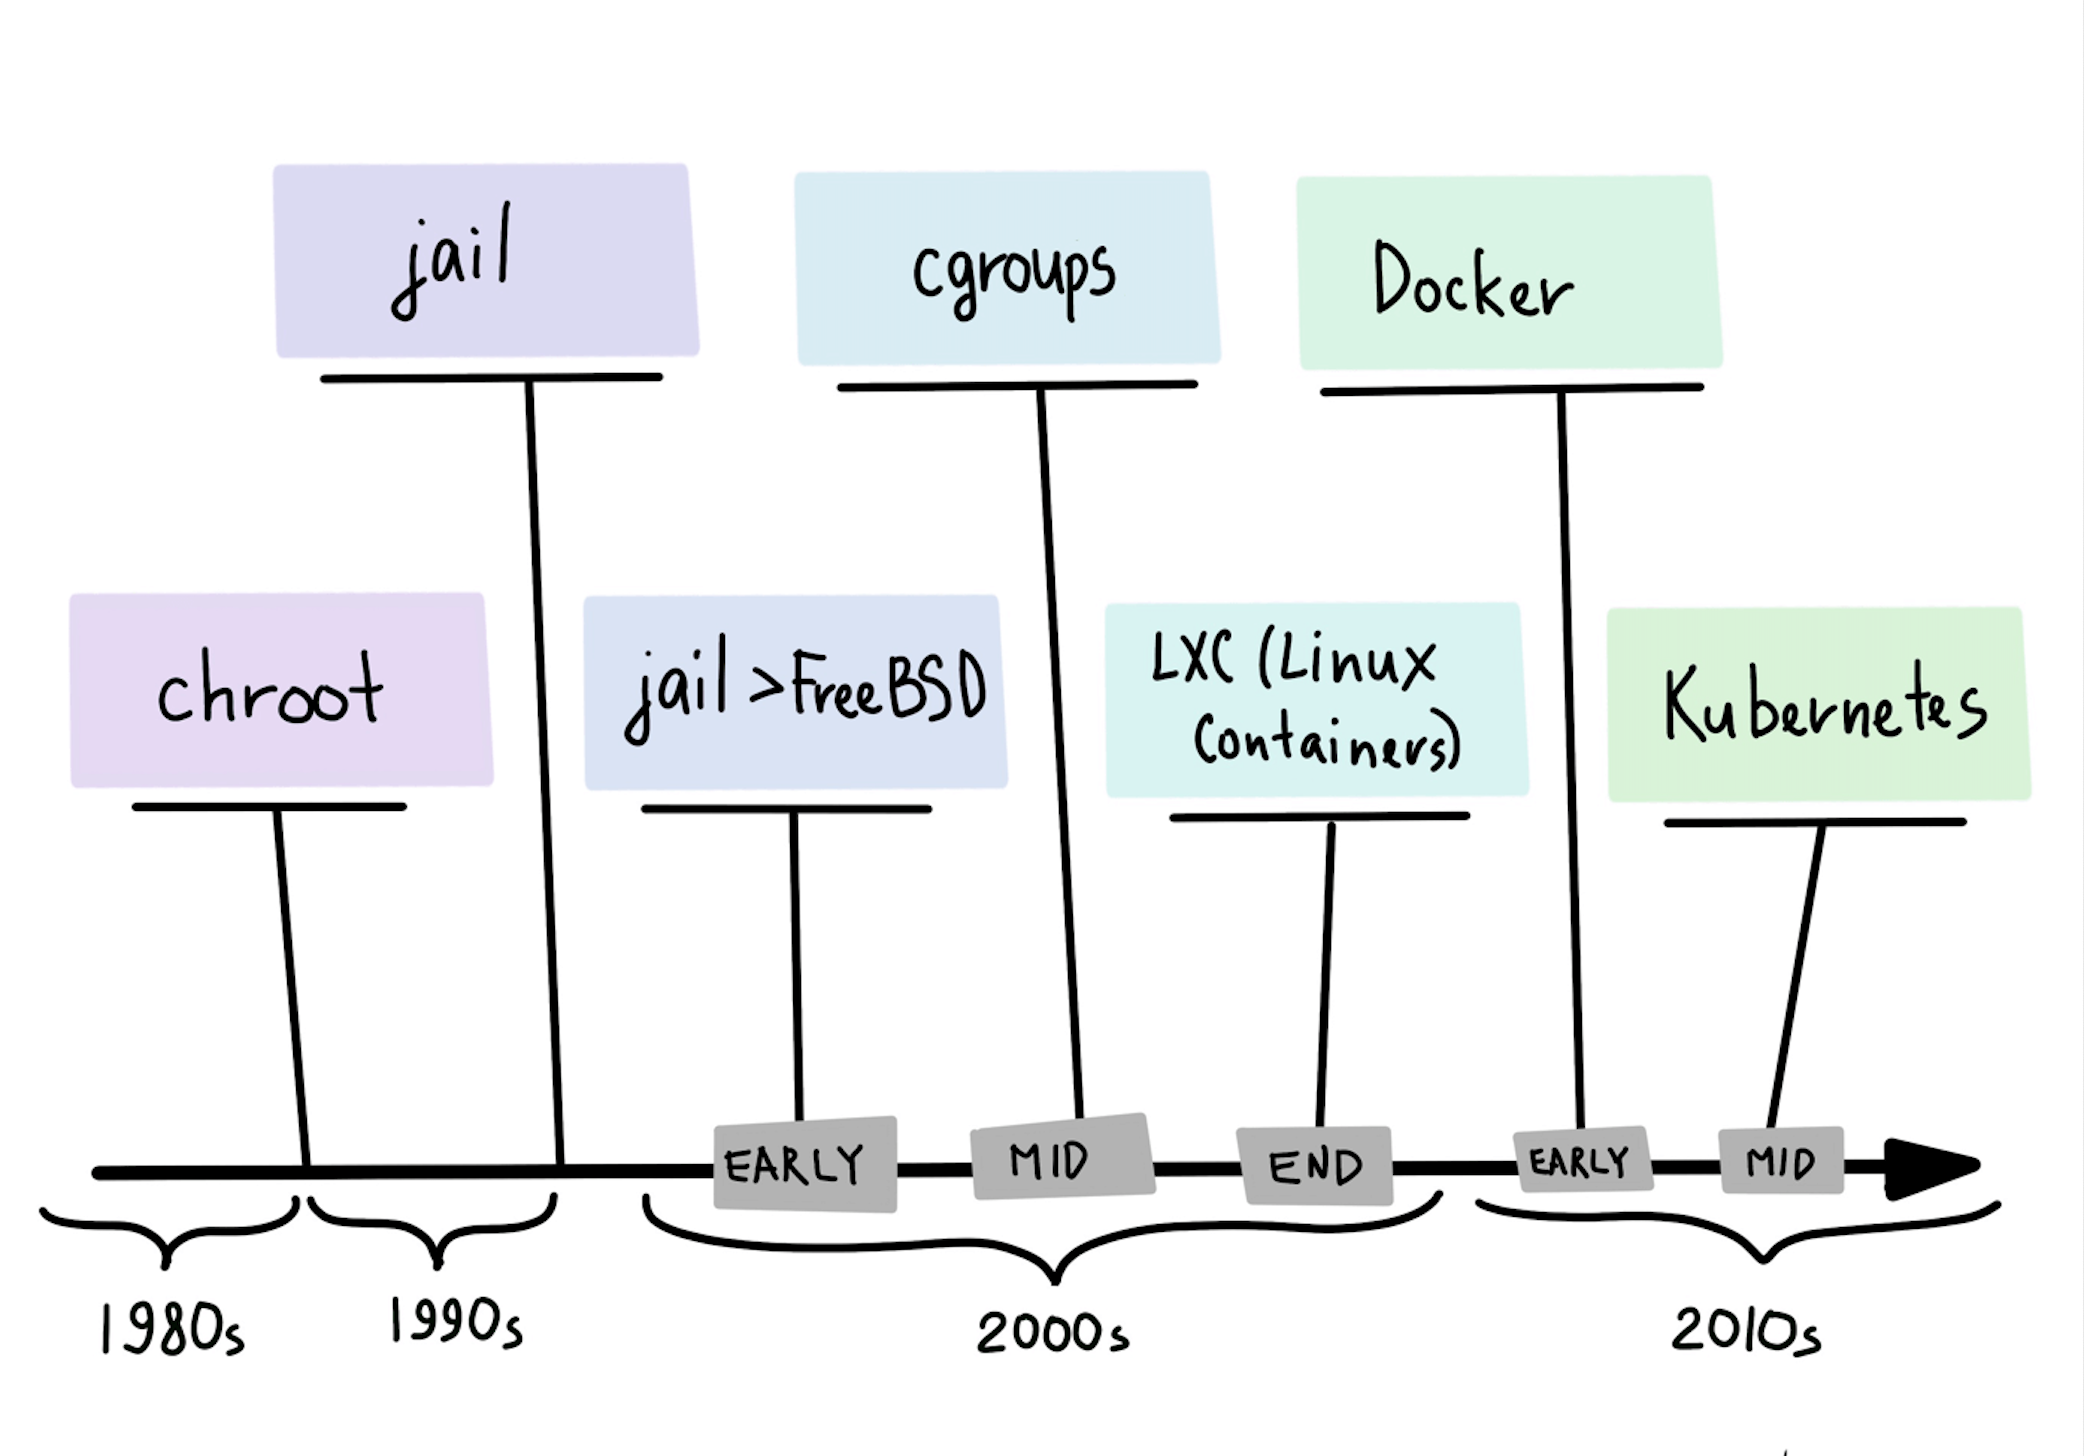 jail
cgroups
Docker
chroot
jail > FreeBSD
LXC (Linux
Containers)
Kubernetes
EARLY
MID
END
EARLY
MID
1980s
1990s
2000s
2010s